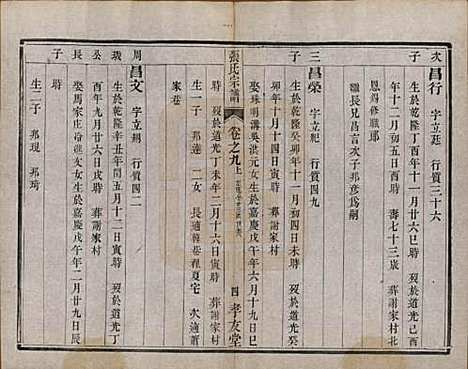 次 昌行 字立廷 行質三十六
子
生於乾隆丁酉年十一月廿六巳時 歿於道光己
年十二月初五日酉時 壽七十三歲 葬謝家村北
恩錫修職郎
繼長兄昌言次子邦彥爲嗣
三 昌榮 字立祀 行質四九
子
生於乾隆癸卯年十一月初四日子時 歿於道光
卯年十月十四日寅時 葬謝家村
娶珠明溝吳洪元女生於嘉慶戊午年六月十四日
張氏宗譜
卷之九上
四 孝友堂
時 歿於道光丁未年二月十六日寅時 葬謝家村
生一子 邦達 二女 長適龍巷裡夏宅 次適蕭
家巷
周 昌文 字立朔 行質四二
琰
公
子
生於乾隆辛丑年閏五月十二日寅時 歿於道光丁
酉年九月廿六日寅時 葬謝家村
娶馬家庄 女生於嘉慶戊午年二月廿九日辰
時
生二子 邦現 邦琦